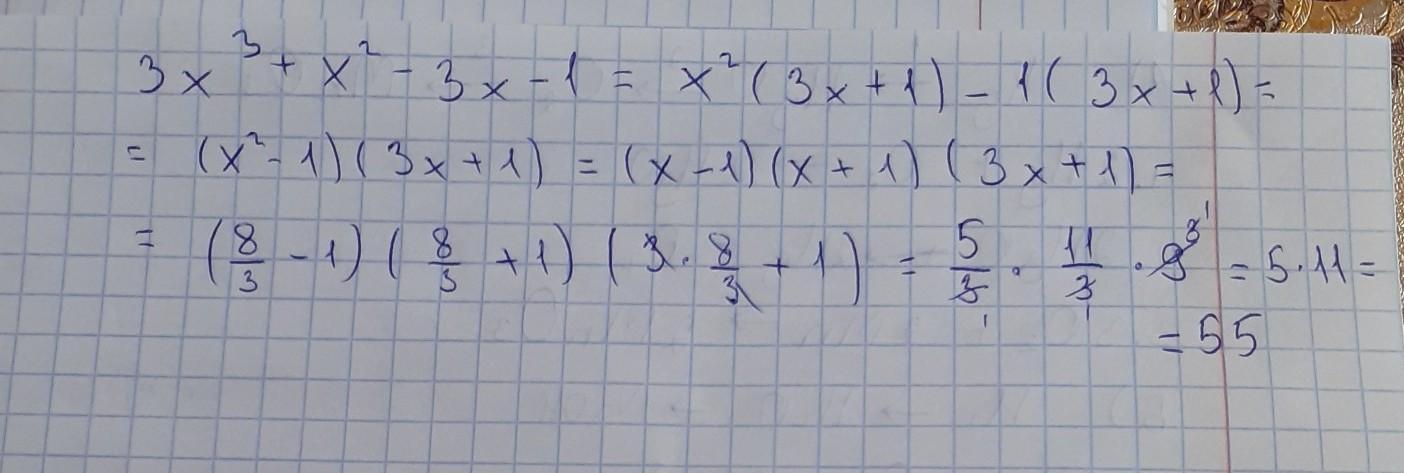 3x³ + x² - 3x - 1 = x²(3x + 1) - 1(3x + 1) =
= (x² - 1)(3x + 1) = (x - 1)(x + 1)(3x + 1) =
= (8/3 - 1)(8/3 + 1)(3 · 8/3 + 1) = 5/3 · 11/3 · 9 = 5 · 11 =
= 55